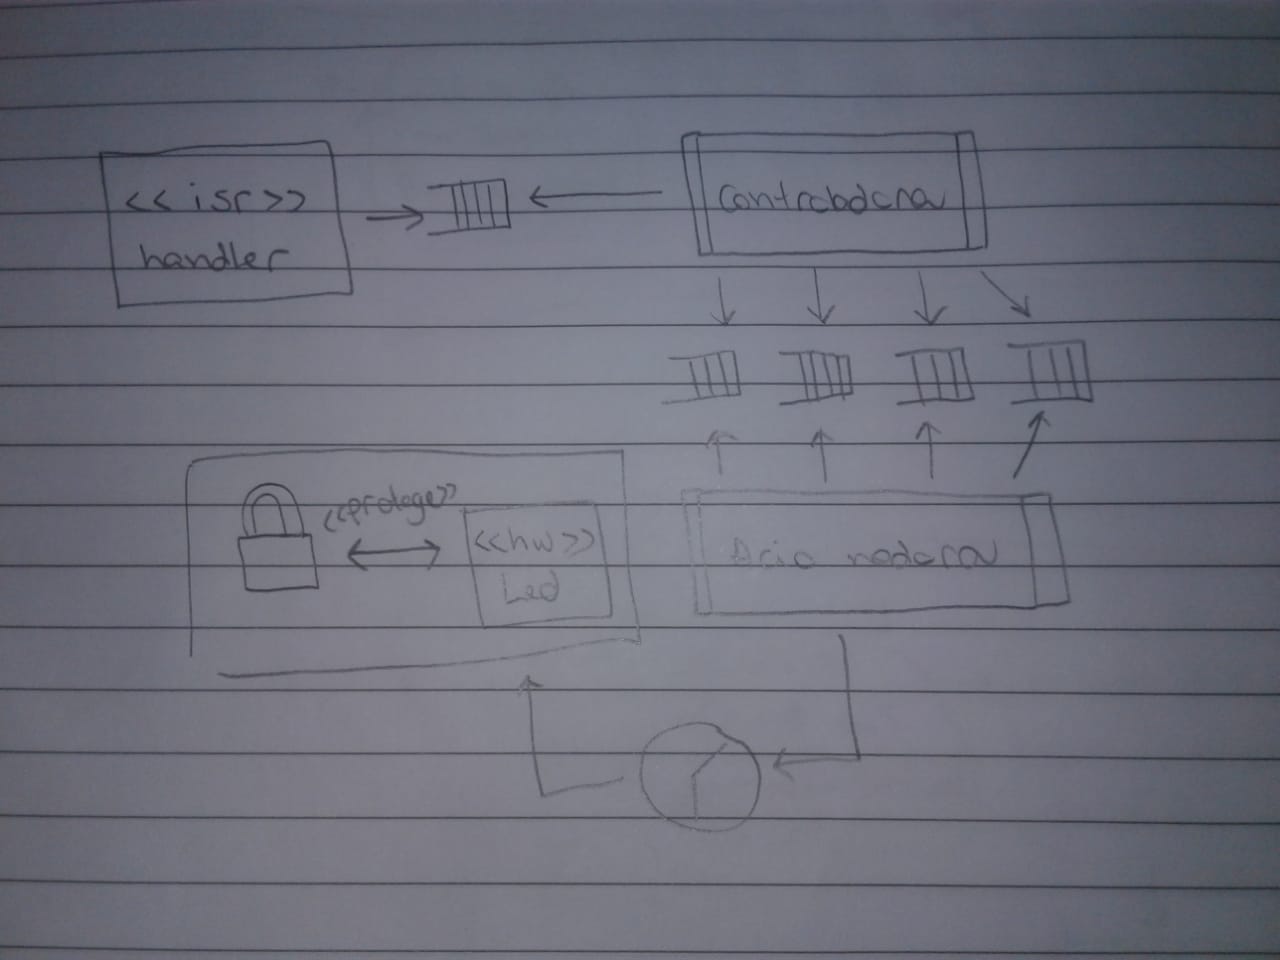 <<isr>>
handler
Controladora
<<protege>>
<<hw>>
Led
Acionadora